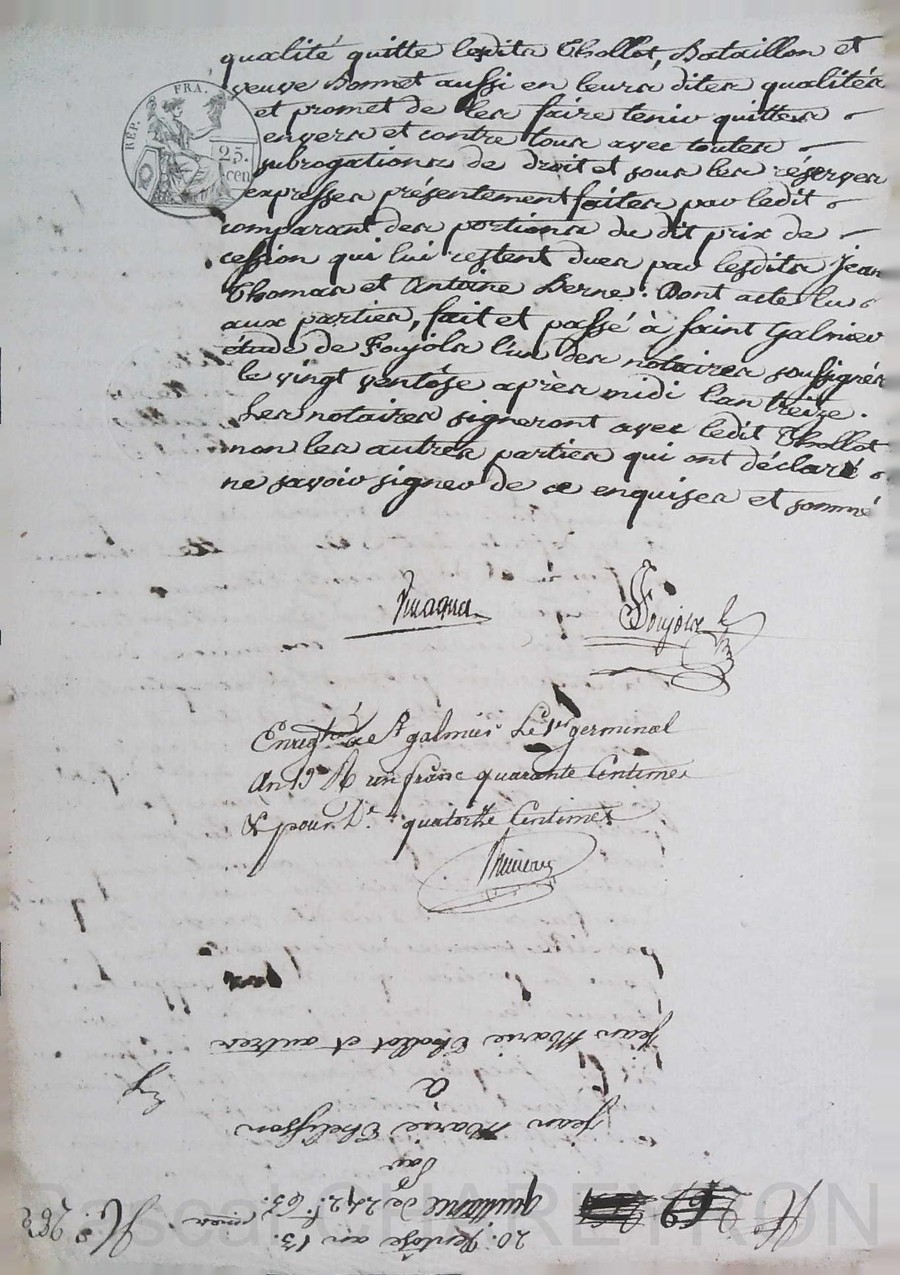 qualité quitte lesdits Thollot, Bataillon et
veuve Bonnet aussi en leurs dites qualités
et promet de les faire tenir quittes
envers et contre tous avec toutes
subrogations de droit et sous les réserves
expresses présentement faites par ledit
comparant des portions du dit prix de
cession qui lui restent dues par lesdits Jean
Thomas et Antoine Berne. Dont acte lu
aux parties, fait et passé à Saint Galmier
étude de Foujols l'un des notaires soussignés
le vingt ventôse après midi l'an treize.
Les notaires signeront avec ledit Thollot
non les autres parties qui ont déclaré
ne savoir signer de ce enquises et sommé
REP. FRA.
25.
cen
Foujols
Enregtré à St galmier Le 1er germinal
An 13 R un franc quarante Centimes
& pour Dme quatorze Centimes
20. Ventôse an 13.
quittance de 242.f 63.
par
Jean Marie Thelisson
a
Jean Marie Thollot et autres
Pascal CHAREYRON